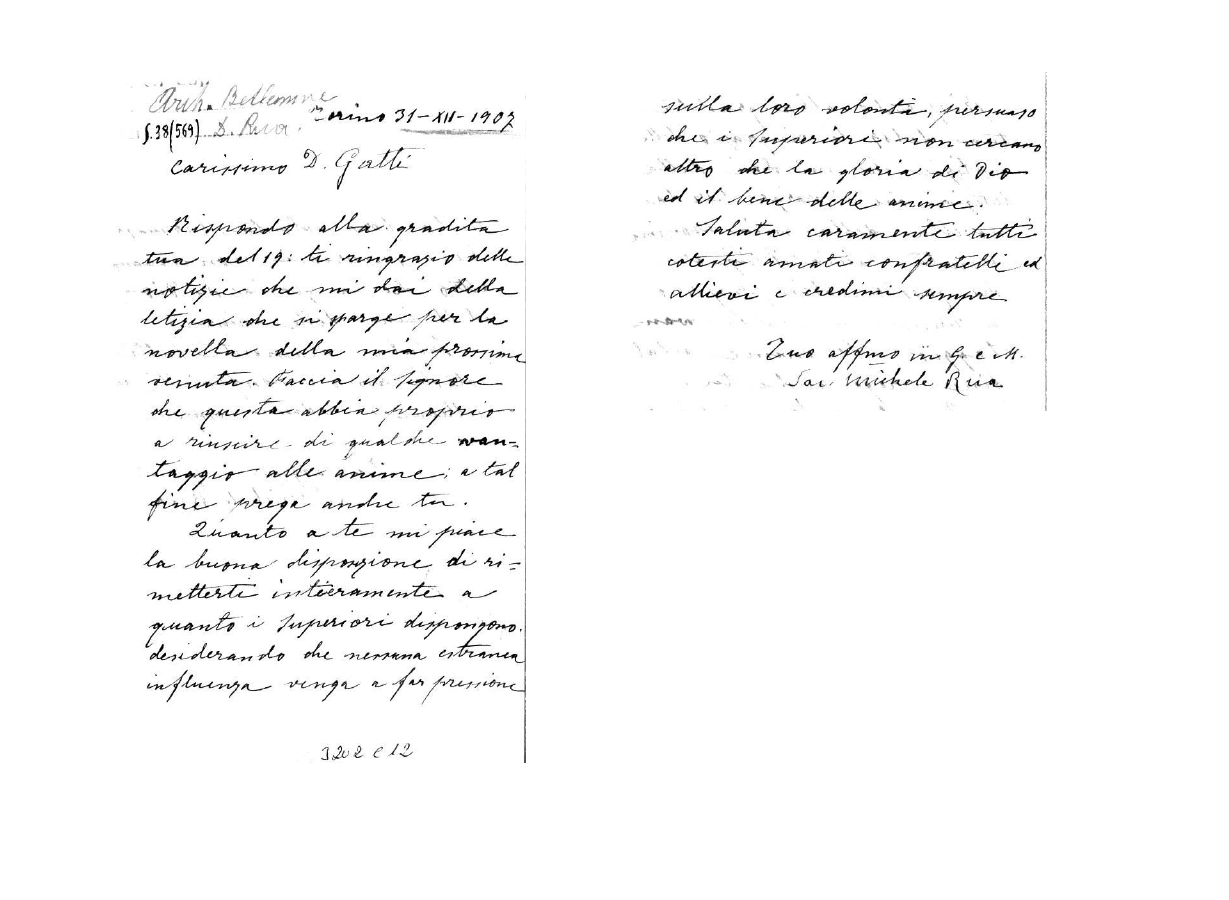 Arch. Betlemme
Torino 31-XII-1907
S.38(569) D. Rua.
Carissimo D. Gatti
Rispondo alla gradita
tua del 19: ti ringrazio delle
notizie che mi dai della
letizia che si sparge per la
novella della mia prossima
venuta. Faccia il Signore
che questa abbia proprio
a riuscire di qualche van=
taggio alle anime; a tal
fine prega anche tu.
Quanto a te mi piace
la buona disposizione di ri=
metterti intieramente a
quanto i Superiori dispongono.
desiderando che nessuna estranea
influenza venga a far pressione
3202 C 12
sulla loro volontà, persuaso
che i Superiori non cercano
altro che la gloria di Dio
ed il bene delle anime.
Saluta caramente tutti
cotesti amati confratelli ed
allievi e credimi sempre
Tuo affmo in G. e M.
Sac. Michele Rua